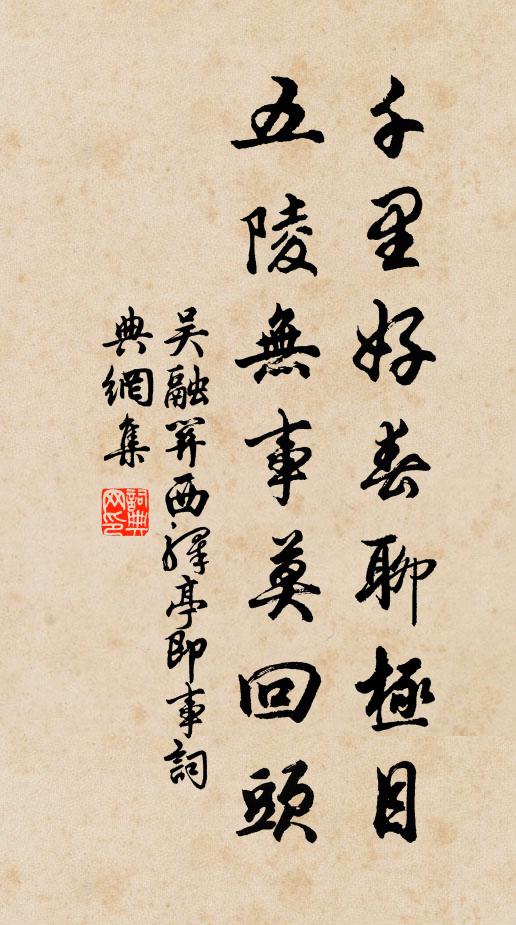 千里好春聊極目
五陵無事莫回頭
吳融關西驛亭即事詞
典網集
詞典網印